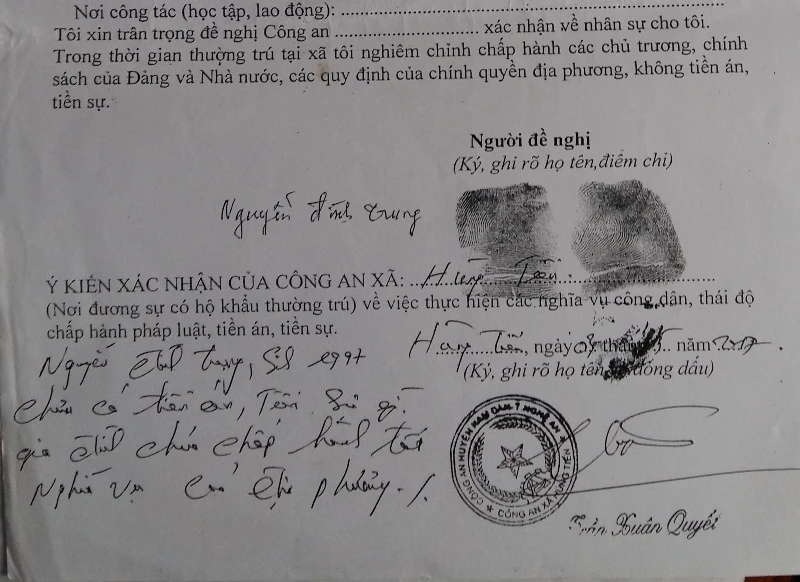 Nơi công tác (học tập, lao động): ..........
Tôi xin trân trọng đề nghị Công an .......... xác nhận về nhân sự cho tôi.
Trong thời gian thường trú tại xã tôi nghiêm chỉnh chấp hành các chủ trương, chính
sách của Đảng và Nhà nước, các quy định của chính quyền địa phương, không tiền án,
tiền sự.
Người đề nghị
(Ký, ghi rõ họ tên,điểm chỉ)
Nguyễn đình trung
Ý KIẾN XÁC NHẬN CỦA CÔNG AN XÃ: Hùng Tiến
(Nơi đương sự có hộ khẩu thường trú) về việc thực hiện các nghĩa vụ công dân, thái độ
chấp hành pháp luật, tiền án, tiền sự.
Hùng Tiến, ngày tháng 5 năm 2017.
(Ký, ghi rõ họ tên đóng dấu)
Nguyễn đình trung, 1997
chưa có tiền án, Tiền Sự gì.
gia đình chấp hành tốt
Nghĩa vụ của địa phương./.
CÔNG AN HUYỆN NAM ĐÀN T NGHỆ AN
CÔNG AN XÃ HÙNG TIẾN
Trần Xuân Quyết